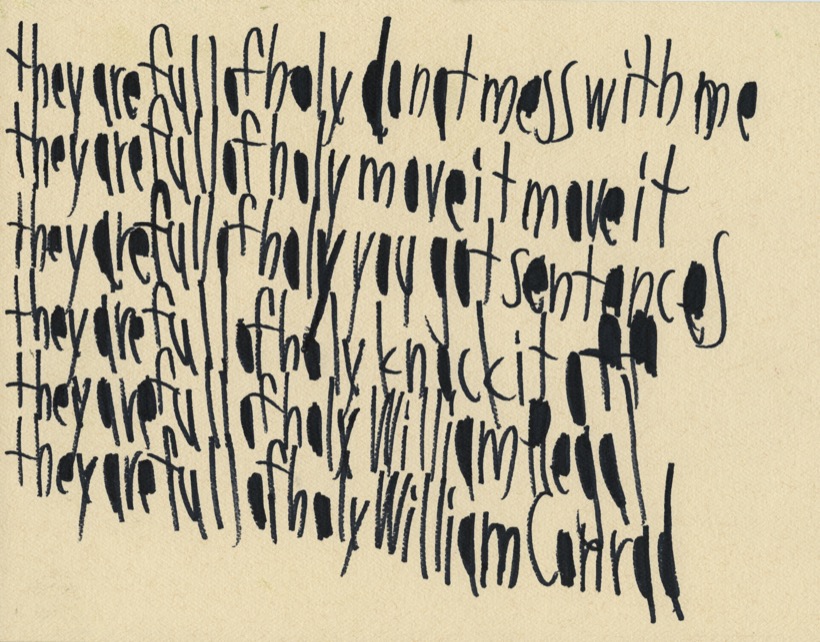 they are full of holy do not mess with me
they are full of holy move it move it
they are full of holy you out sentences
they are full of holy knock it off
they are full of holy William Read
they are full of holy William Conrad